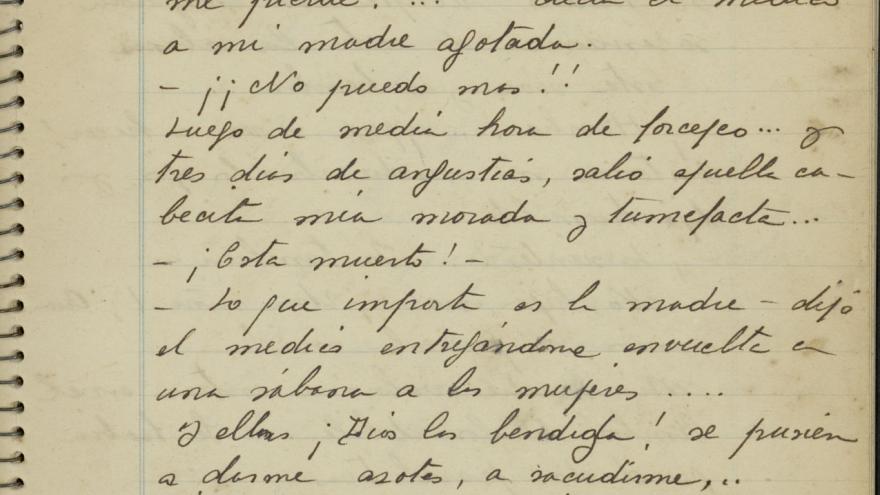 me fuerte!.... decía el médico
a mi madre agotada.
- ¡¡No puedo mas!!
Luego de media hora de forcejeo... y
tres dias de angustias, salió aquella ca-
becita mia morada y tumefacta...
- ¡Esta muerta! -
- Lo que importa es la madre - dijó
el medico entregándome envuelta en
una sábana a las mujeres ....
Y ellas ¡Dios las bendiga! se pusieron
a darme azotes, a sacudirme,..